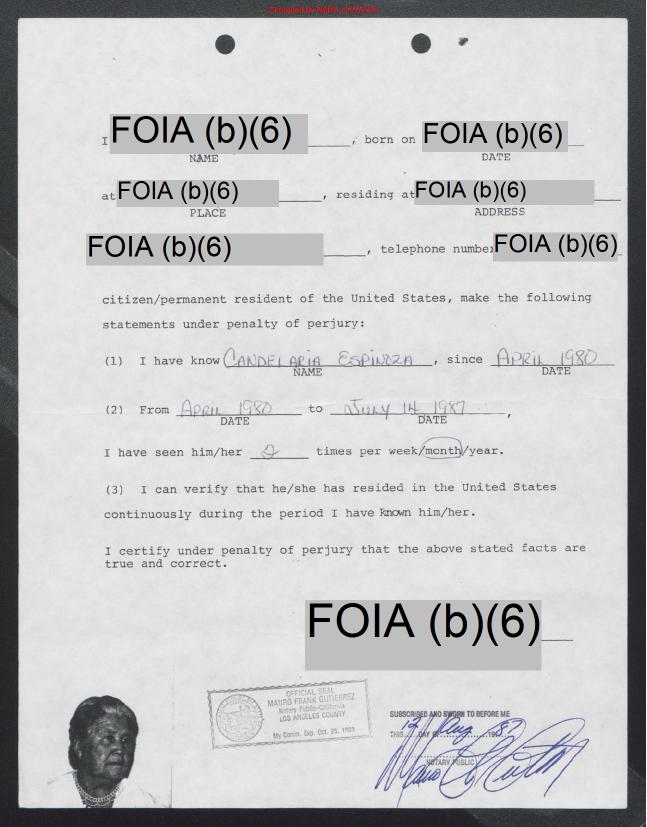 I FOIA (b)(6), born on FOIA (b)(6)
NAME DATE
at FOIA (b)(6), residing at FOIA (b)(6)
PLACE ADDRESS
FOIA (b)(6), telephone number FOIA (b)(6)
citizen/permanent resident of the United States, make the following
statements under penalty of perjury:
(1) I have know CANDELARIA ESPINOZA, since APRIL 1980
NAME DATE
(2) From APRIL 1980 to JULY 14 1987,
DATE DATE
I have seen him/her 2 times per week/month/year.
(3) I can verify that he/she has resided in the United States
continuously during the period I have known him/her.
I certify under penalty of perjury that the above stated facts are
true and correct.
FOIA (b)(6)
OFFICIAL SEAL
MAURO FRANK GUTIERREZ
Notary Public-California
LOS ANGELES COUNTY
My Comm. Exp. Oct. 25, 1989
SUBSCRIBED AND SWORN TO BEFORE ME
THIS 12 DAY OF Aug 1987
NOTARY PUBLIC